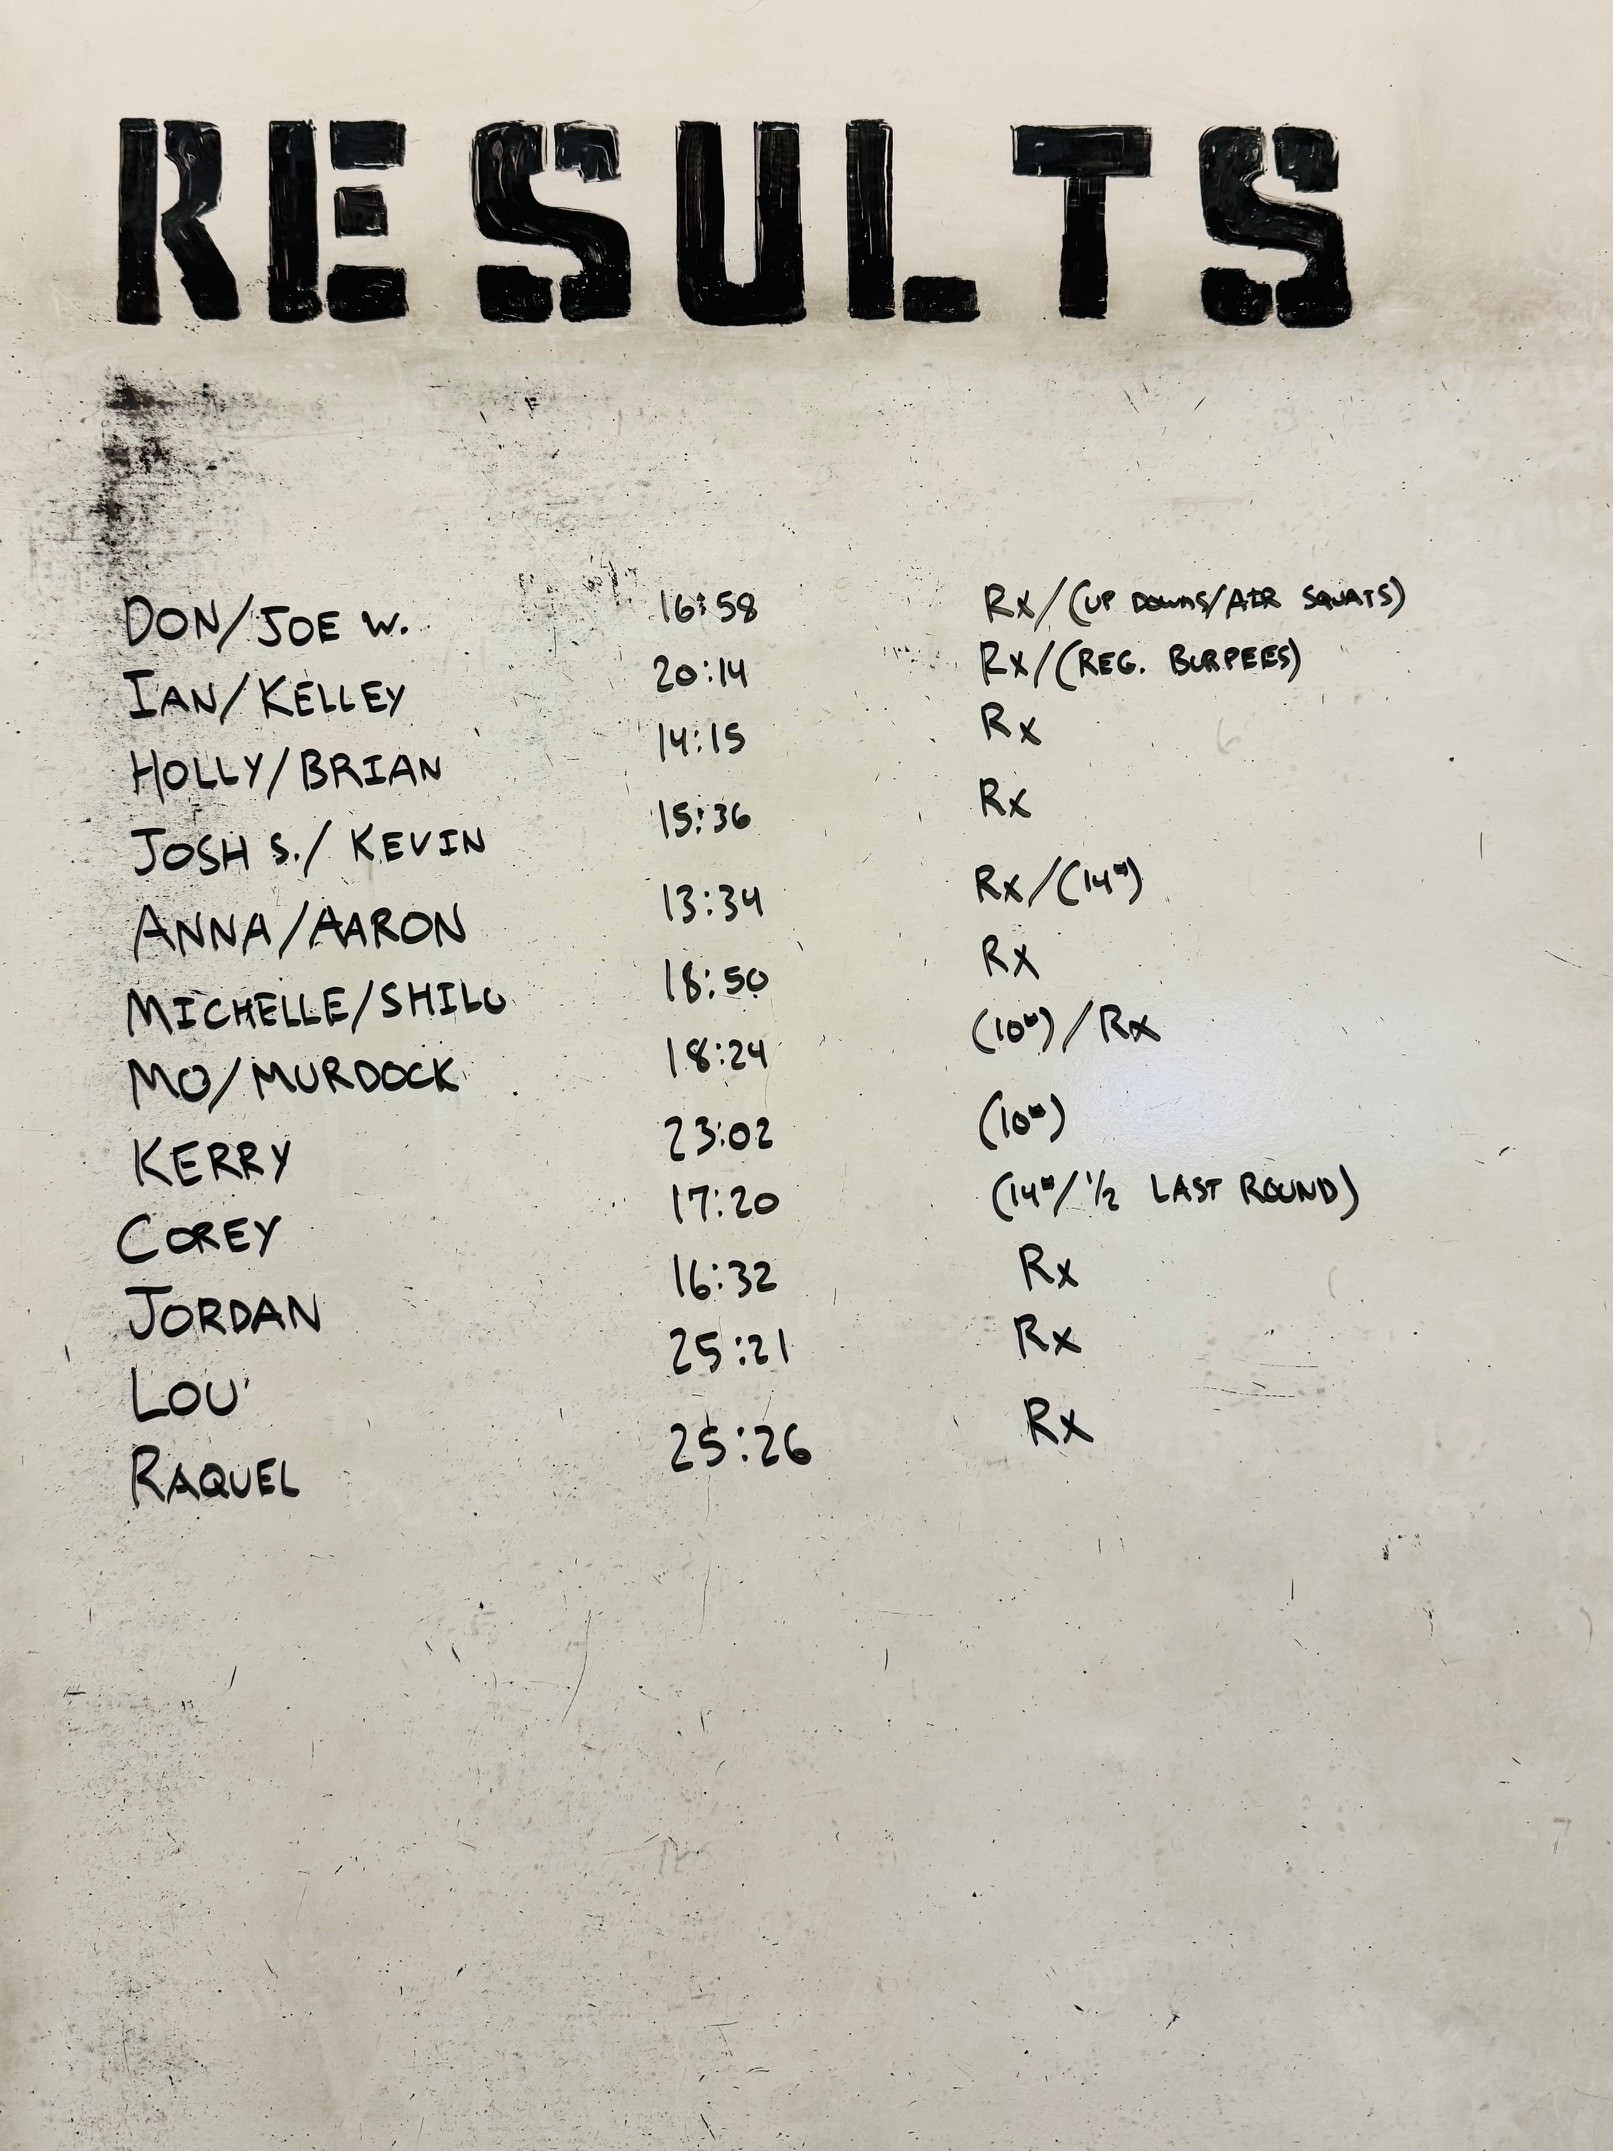 RESULTS
DON/JOE W. 16:58 Rx/(UP DOWNS/AIR SQUATS)
IAN/KELLEY 20:14 Rx/(REG. BURPEES)
HOLLY/BRIAN 14:15 Rx
JOSH S./KEVIN 15:36 Rx
ANNA/AARON 13:34 Rx/(14#)
MICHELLE/SHILO 18:50 Rx
MO/MURDOCK 18:24 (10#)/Rx
KERRY 23:02 (10#)
COREY 17:20 (14#/1/2 LAST ROUND)
JORDAN 16:32 Rx
LOU 25:21 Rx
RAQUEL 25:26 Rx